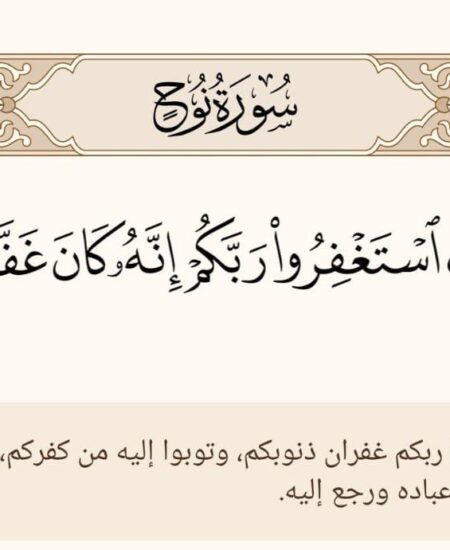 سُورَةُ نُوحٍ
ٱسۡتَغۡفِرُواْ رَبَّكُمۡ إِنَّهُۥ كَانَ
ربكم غفران ذنوبكم، وتوبوا إليه من كفركم،
عباده ورجع إليه.